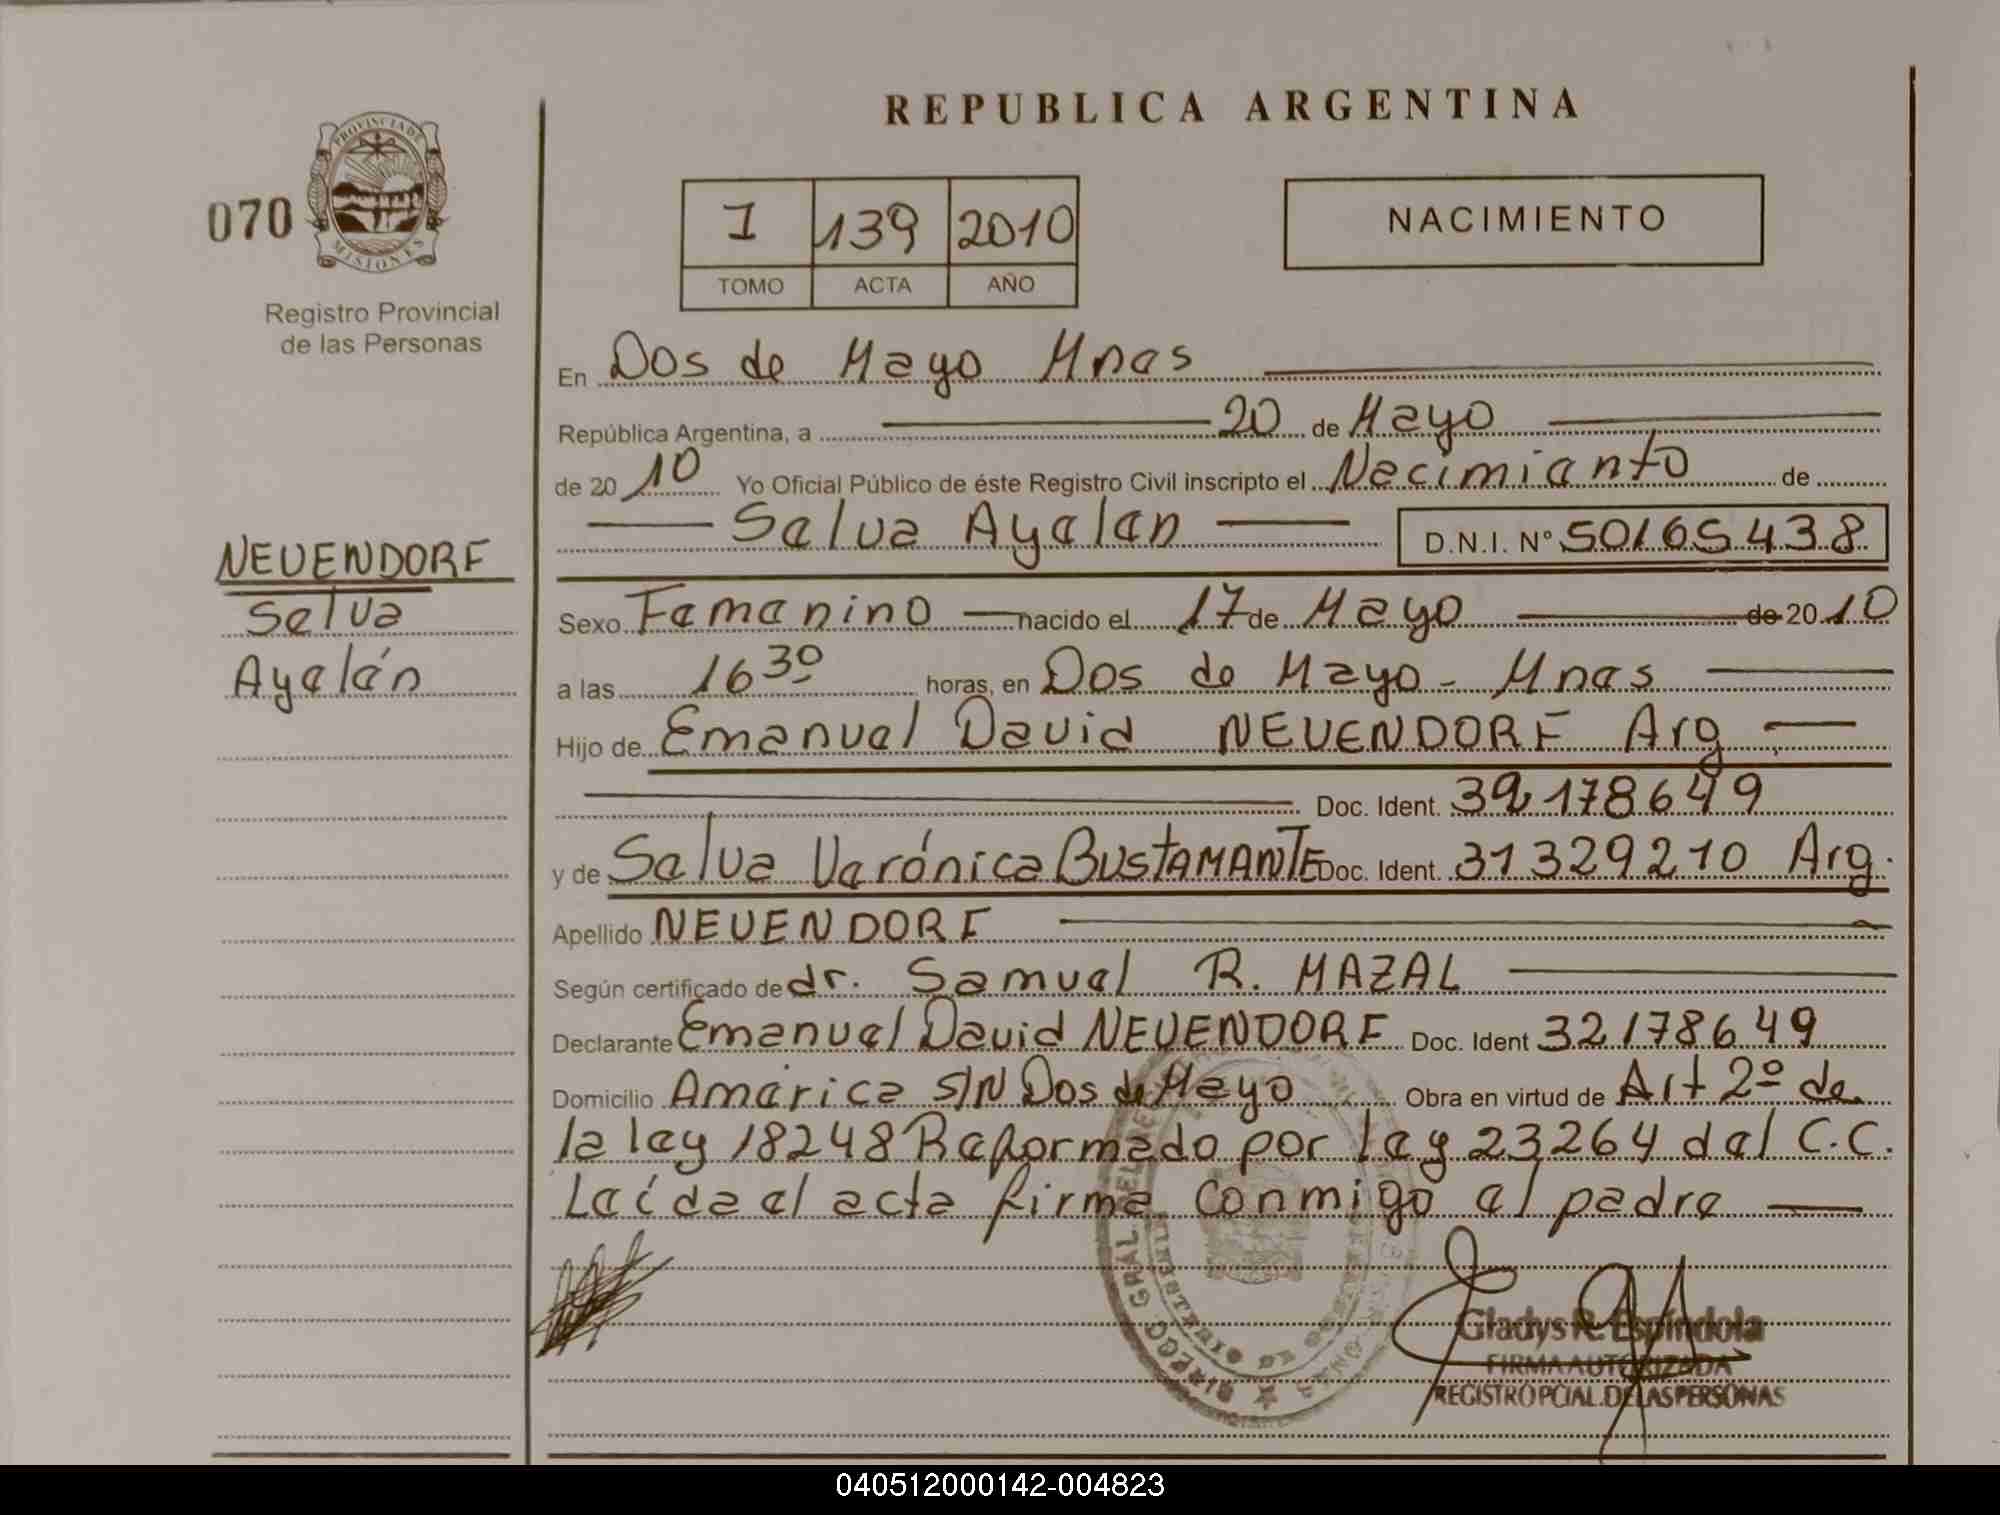 REPUBLICA ARGENTINA
070
PROVINCIA DE
MISIONES
Registro Provincial
de las Personas
I 139 2010
TOMO ACTA AÑO
NACIMIENTO
En Dos de Mayo Mnes
República Argentina, a 20 de Mayo
de 20 10 Yo Oficial Público de éste Registro Civil inscripto el Nacimiento de
Selva Ayelen D.N.I. Nº 50165438
NEUENDORF
Selva
Ayelén
Sexo Femenino nacido el 17 de Mayo de 20 10
a las 16 30 horas, en Dos de Mayo - Mnes
Hijo de Emanuel David NEUENDORF Arg
Doc. Ident. 32178649
y de Selva Verónica BUSTAMANTE Doc. Ident. 31329210 Arg.
Apellido NEUENDORF
Según certificado de dr. Samuel R. MAZAL
Declarante Emanuel David NEUENDORF Doc. Ident 32178649
Domicilio América S/N Dos de Mayo Obra en virtud de Art 2º de
la ley 18248 Reformado por ley 23264 del C.C.
Leída el acta firma conmigo el padre
Gladys R. Espíndola
FIRMA AUTORIZADA
REGISTRO PCIAL. DE LAS PERSONAS
040512000142-004823